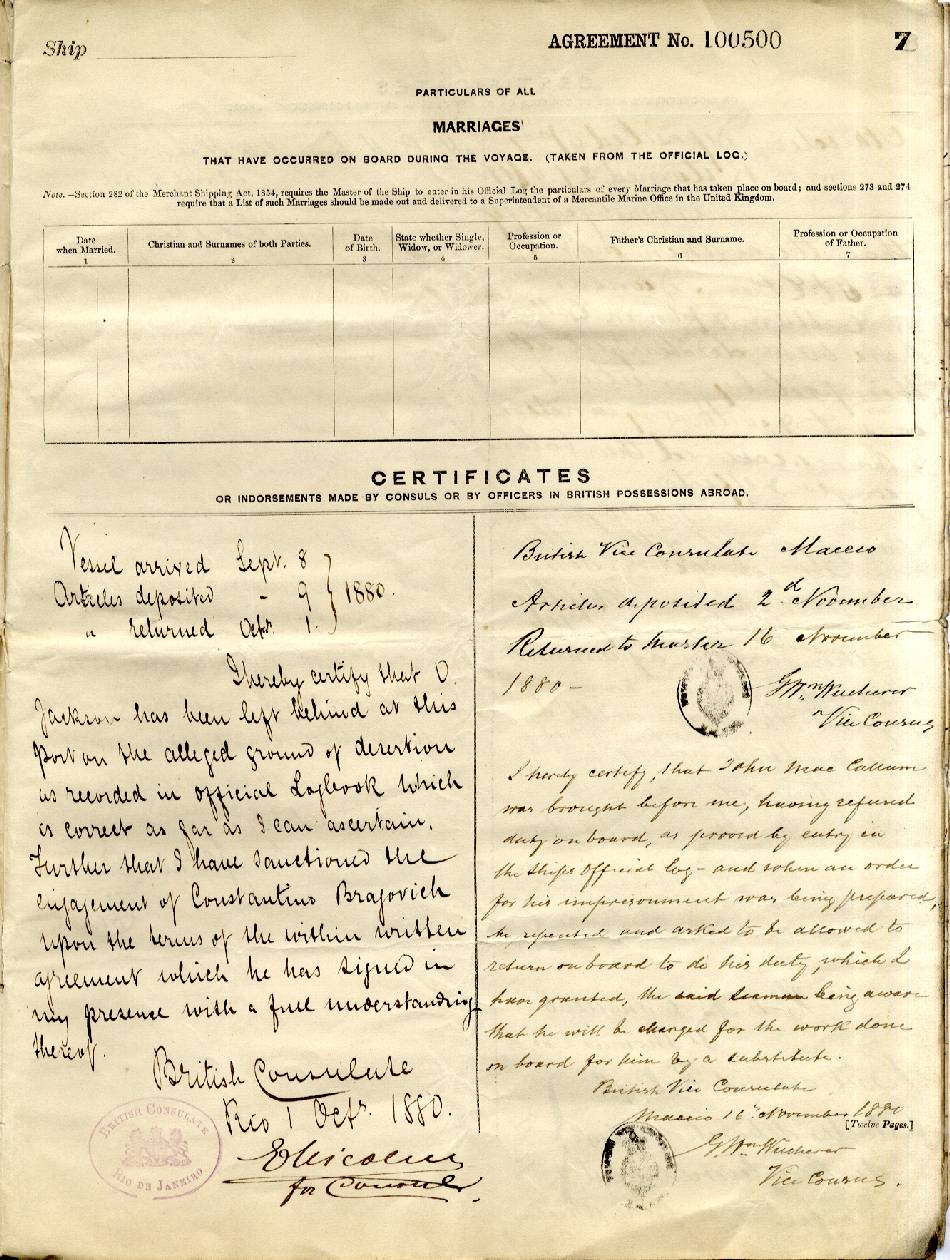 Ship
AGREEMENT No. 100500
7
PARTICULARS OF ALL
MARRIAGES
THAT HAVE OCCURRED ON BOARD DURING THE VOYAGE. (TAKEN FROM THE OFFICIAL LOG.)
Note.—Section 282 of the Merchant Shipping Act, 1854, requires the Master of the Ship to enter in his Official Log the particulars of every Marriage that has taken place on board; and sections 273 and 274
require that a List of such Marriages should be made out and delivered to a Superintendent of a Mercantile Marine Office in the United Kingdom.
Date when Married. 1
Christian and Surnames of both Parties. 2
Date of Birth. 3
State whether Single, Widow, or Widower. 4
Profession or Occupation. 5
Father's Christian and Surname. 6
Profession or Occupation of Father. 7
CERTIFICATES
OR INDORSEMENTS MADE BY CONSULS OR BY OFFICERS IN BRITISH POSSESSIONS ABROAD.
Vessel arrived Sept. 8
Articles deposited - 9 } 1880.
" returned Octr. 1.
I hereby certify that O.
Jackson has been left behind at this
port on the alleged ground of desertion
as recorded in official Logbook which
is correct as far as I can ascertain.
Further that I have sanctioned the
engagement of Constantino Bragovich
upon the terms of the within written
agreement which he has signed in
my presence with a full understanding
thereof.
British Consulate
Rio 1 Octr. 1880.
for Consul.
BRITISH CONSULATE
RIO DE JANEIRO
British Vice Consulate Maceio
Articles deposited 2d November
Returned to Master 16 November
1880 -
Gm Wucherer
Vice Consul
I hereby certify, that John Mac Callum
was brought before me, having refused
duty on board, as proved by entry in
the ships Official log - and when an order
for his imprisonment was being prepared,
he repented and asked to be allowed to
return on board to do his duty, which I
have granted, the said seaman being aware
that he will be charged for the work done
on board for him by a substitute.
British Vice Consulate
Maceio 16 November 1880
[Twelve Pages.]
Gm Wucherer
Vice Consul.